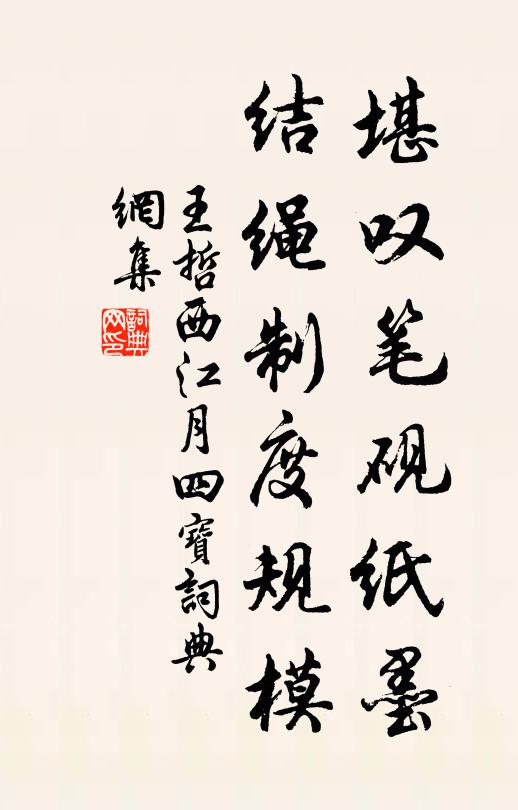 堪叹笔砚纸墨
结绳制度规模
王哲西江月四寶詞典
網集
詞典網印